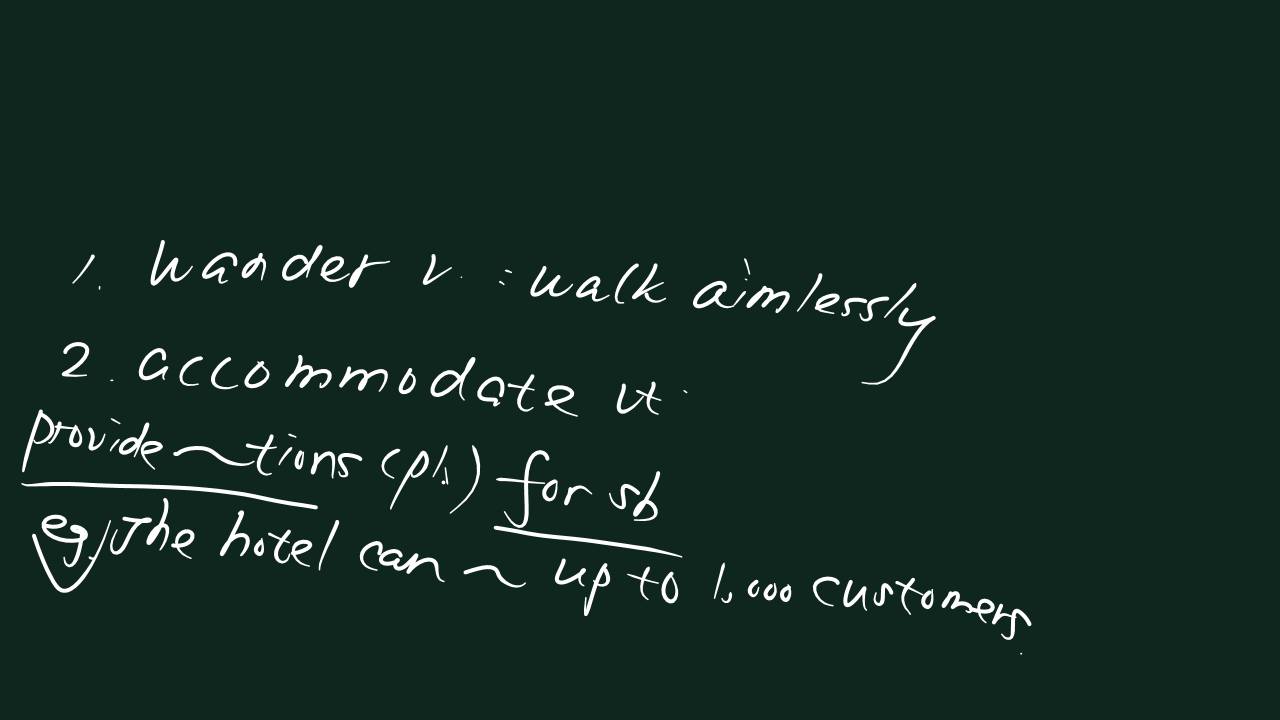 1. wander v. : walk aimlessly
2. accommodate vt.
provide ~tions (pl.) for sb
eg. The hotel can ~ up to 1,000 customers.